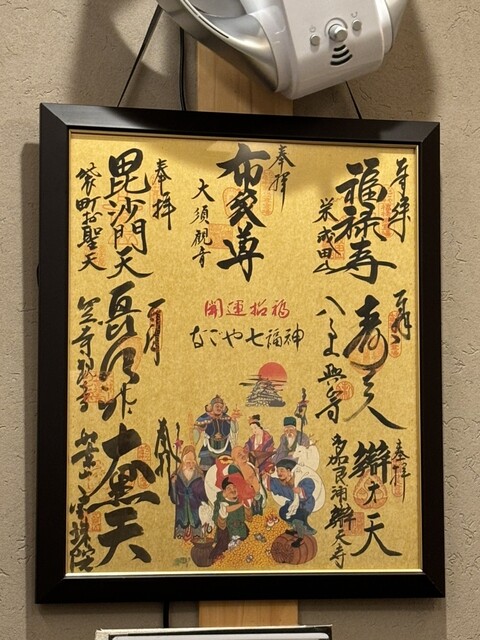 奉拝
福禄寿
栄成田山
奉拝
寿老人
奉拝
辯才天
多加良浦辯天寺
奉拝
布袋尊
大須観音
開運招福
なごや七福神
奉拝
毘沙門天
袋町お聖天
恵比須
笠寺観音
大黒天
宝珠院